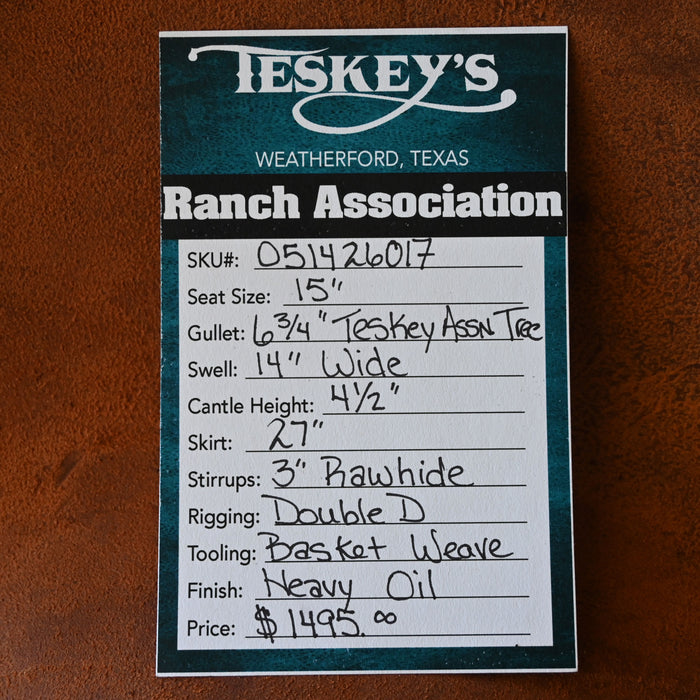 TESKEY'S
WEATHERFORD, TEXAS
Ranch Association
SKU#: 051426017
Seat Size: 15"
Gullet: 6 3/4" Teskey Assn Tree
Swell: 14" Wide
Cantle Height: 4 1/2"
Skirt: 27"
Stirrups: 3" Rawhide
Rigging: Double D
Tooling: Basket Weave
Finish: Heavy Oil
Price: $1495.00